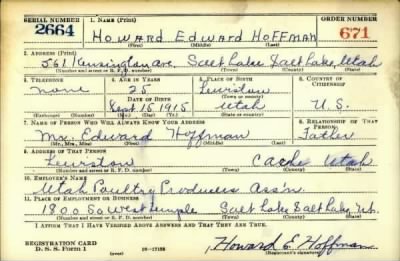 SERIAL NUMBER 1. NAME (Print) ORDER NUMBER
2664 Howard Edward Hoffman 671
(First) (Middle) (Last)
2. ADDRESS (Print)
561 Kensington Ave. Salt Lake Salt Lake, Utah
(Number and street or R. F. D. number) (Town) (County) (State)
3. TELEPHONE 4. AGE IN YEARS 5. PLACE OF BIRTH 6. COUNTRY OF CITIZENSHIP
none 25 Lewiston
DATE OF BIRTH (Town or county)
Sept. 15 1915 Utah U.S.
(Mo.) (Day) (Yr.) (State or country)
7. NAME OF PERSON WHO WILL ALWAYS KNOW YOUR ADDRESS 8. RELATIONSHIP OF THAT PERSON
Mr. Edward Hoffman Father
(Mr., Mrs., Miss) (First) (Middle) (Last)
9. ADDRESS OF THAT PERSON
Lewiston Cache Utah
(Number and street or R. F. D. number) (Town) (County) (State)
10. EMPLOYER'S NAME
Utah Poultry Producers Ass'n.
11. PLACE OF EMPLOYMENT OR BUSINESS
1800 So West Temple Salt Lake Salt Lake Ut.
(Number and street or R. F. D. number) (Town) (County) (State)
I AFFIRM THAT I HAVE VERIFIED ABOVE ANSWERS AND THAT THEY ARE TRUE.
REGISTRATION CARD
D. S. S. Form 1 16—17105 Howard E. Hoffman
(Registrant's signature)